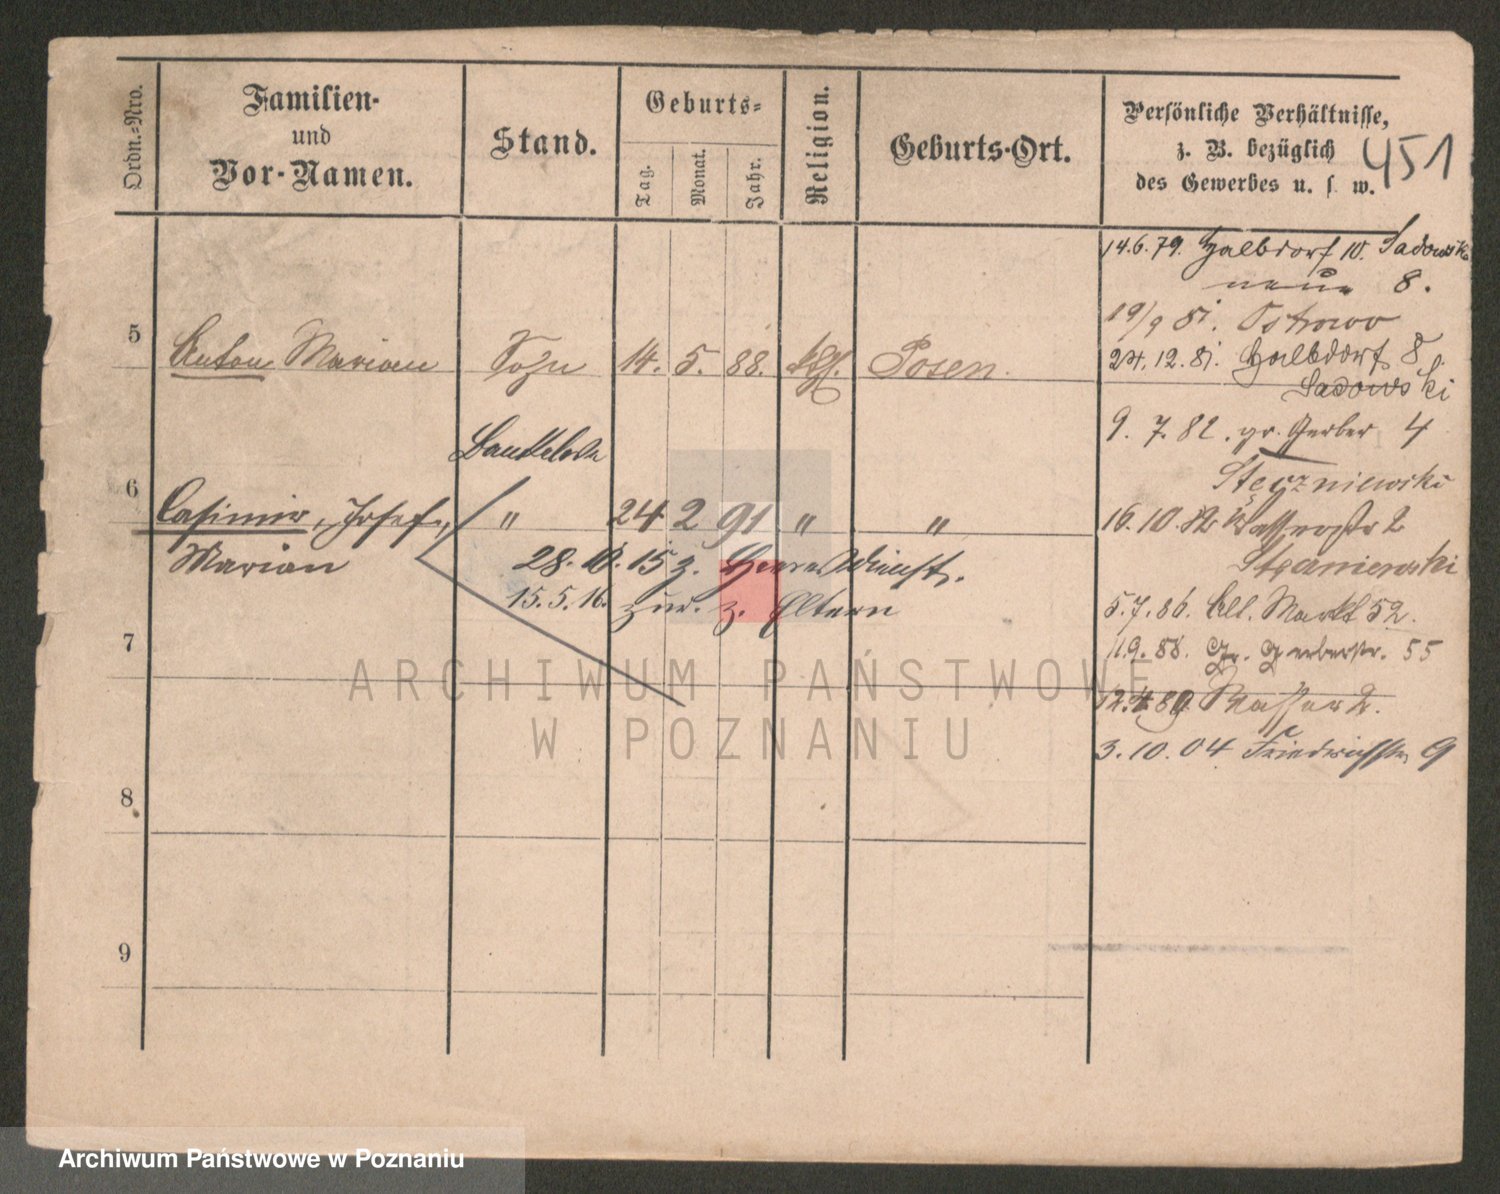 Ordn.-Nro.
Familien-
und
Vor-Namen.
Stand.
Geburts-
Tag.
Monat.
Jahr.
Religion.
Geburts-Ort.
Persönliche Verhältnisse,
z. B. bezüglich
des Gewerbes u. s. w.
451
14.6.79. Halbdorf 10. Sadowski
neue 8.
19/9 81. Ostrowo
5 Anton Marian Sohn 14. 5. 88. kth. Posen.
24.12.81. Halbdorf 8
Sadowski
9. 7. 82. gr. Gerber 4
6
Casimir, Josef, " 24 2 91 " "
16.10.82 Wasserstr 2
Marian 28. 10. 15 z. Heeresdienst.
15.5.16. zur. z. Eltern
5.7.86. All. Markt 52.
7
1.9.88. Gr. Gerberstr. 55
Wasser 2.
3.10.04 Friedrichstr 9
8
9
ARCHIWUM PAŃSTWOWE
W POZNANIU
Archiwum Państwowe w Poznaniu